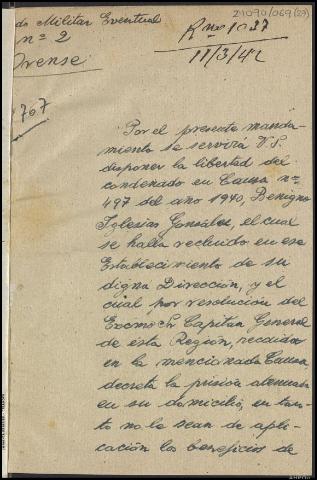 21090/069(27)
do Militar Eventual
nº 2
Orense
R nº 1037
11/3/42
767
Por el presente manda-
miento se servirá V.S.
disponer la libertad del
condenado en Causa nº
497 del año 1940, Benigno
Iglesias González, el cual
se halla recluido en ese
Establecimiento de su
digna Dirección, y el
cual por resolución del
Excmo Sr Capitan General
de esta Región, recaida
en la mencionada Causa,
decreta la prisión atenuada
en su domicilio, en tan-
to no le sean de apli-
cación los beneficios de